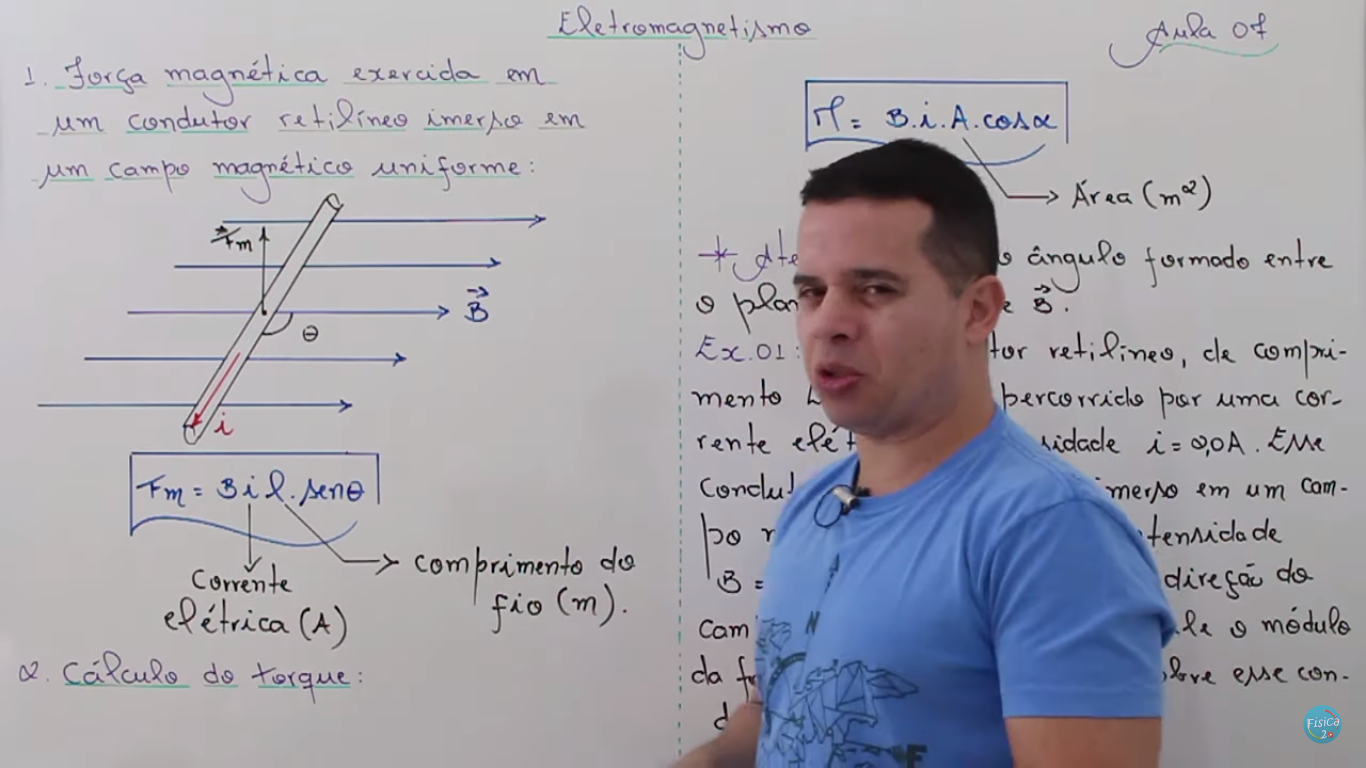 Eletromagnetismo
Aula 07
1. Força magnética exercida em
um condutor retilíneo imerso em
um campo magnético uniforme:
Fm
B
θ
i
Fm = B i l. senθ
Corrente
elétrica (A)
comprimento do
fio (m).
2. Cálculo do torque:
M = B.i.A.cosα
Área (m²)
* ângulo formado entre
o B.
Ex.01: retilíneo, de compri-
mento percorrido por uma cor-
rente i = 2,0A. Esse
imerso em um cam-
po
B = direção do
o módulo
da esse con-
N
E
Física
2.0